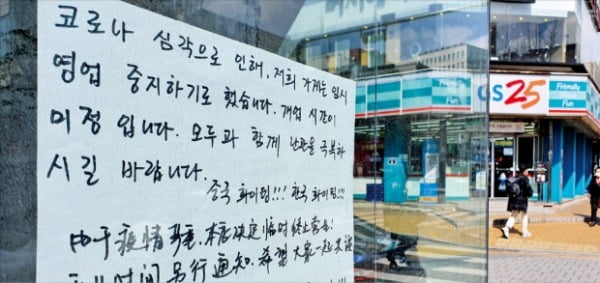 코로나 심각으로 인해, 저희 가게는 임시
영업 중지하기로 했습니다. 개업 시간이
미정 입니다. 모두과 함께 난관을 극복하
시길 바랍니다.
중국 화이팅!!! 한국 화이팅!!!
由于疫情严重, 本店决定临时终止营业!
时间另行通知. 希望大家一起
GS25
Friendly
Fun
Friendly
Fun